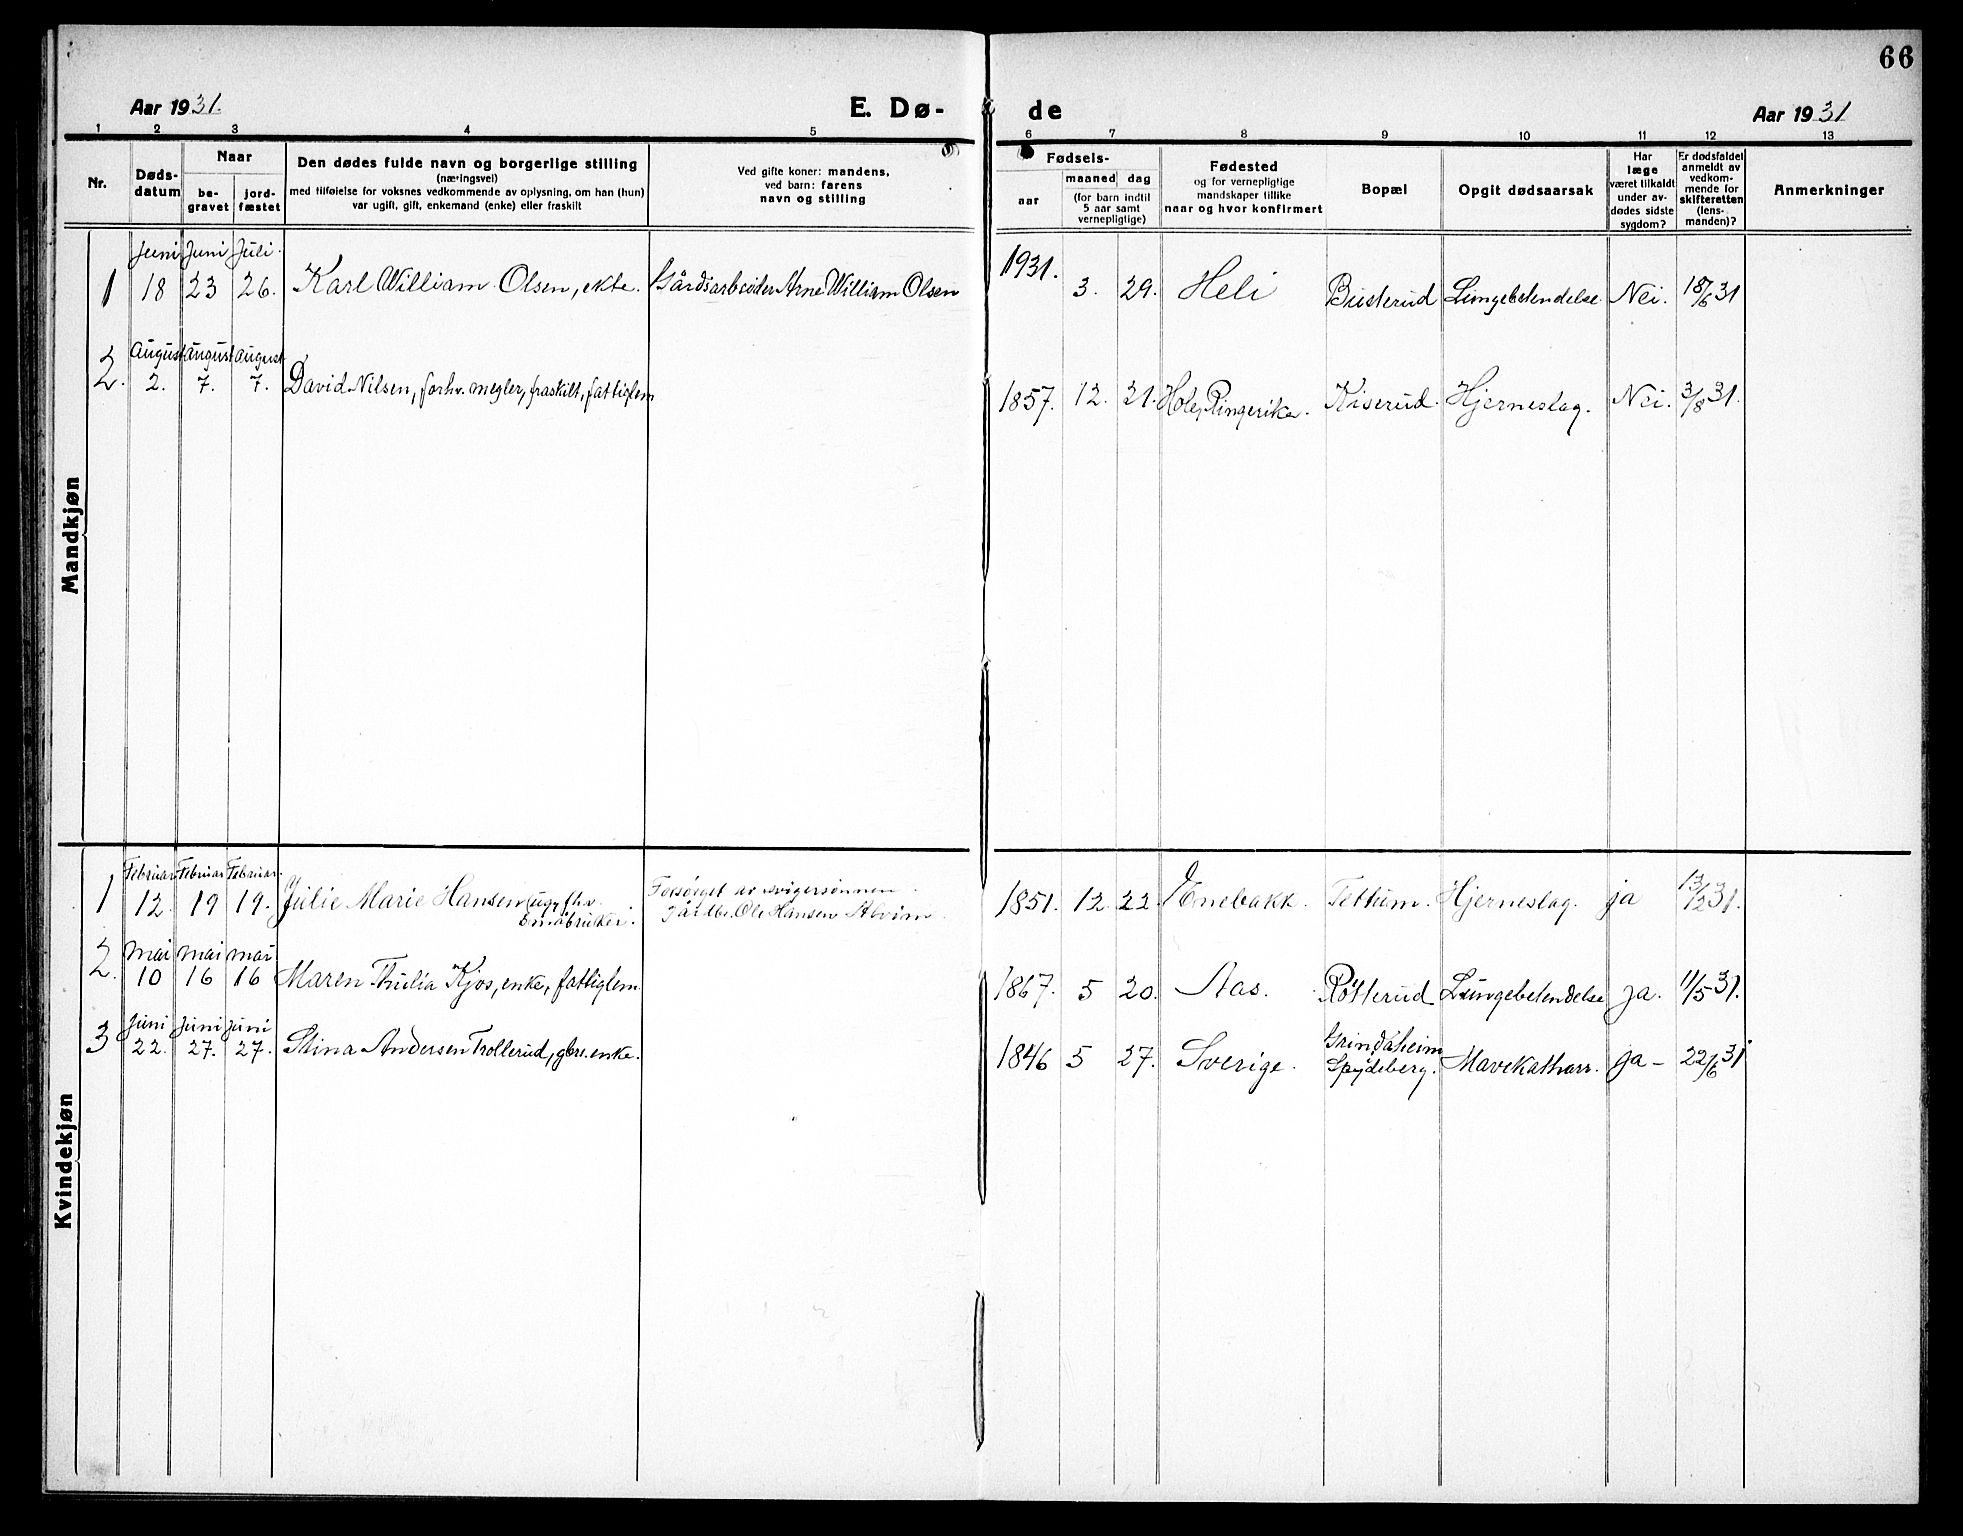 66
Aar 1931. E. Dø- de Aar 1931
1 2 3 4 5 6 7 8 9 10 11 12 13
Nr.
Døds-
datum
Naar
be-
gravet
jord-
fæstet
Den dødes fulde navn og borgerlige stilling
(næringsvei)
med tilføielse for voksnes vedkommende av oplysning, om han (hun)
var ugift, gift, enkemand (enke) eller fraskilt
Ved gifte koner: mandens,
ved barn: farens
navn og stilling
Fødsels-
aar
maaned dag
(for barn indtil
5 aar samt
vernepligtige)
Fødested
og for vernepligtige
mandskaper tillike
naar og hvor konfirmert
Bopæl
Opgit dødsaarsak
Har
læge
været tilkaldt
under av-
dødes sidste
sygdom?
Er dødsfaldet
anmeldt av
vedkom-
mende for
skifteretten
(lens-
manden)?
Anmerkninger
Mandkjøn
Juni Juni Juli.
1 18 23 26. Karl William Olsen, ekte. Gårdsarbeider Arne William Olsen 1931. 3. 29. Heli Busterud Lungebetendelse Nei. 18/6 31
August August August
2. 2. 7. 7. David Nilsen, forhv. megler, fraskilt, fattiglem 1857. 12. 21. Hole, Ringerike. Kiserud. Hjerneslag. Nei. 3/8 31.
Kvindekjøn
Februar Februar Februar
1 12. 19 19. Julie Marie Hansen, ug, fhv. Forsørget av svigersønnen 1851. 12. 22. Enebakk. Tettum. Hjerneslag. ja 13/12 31.
Småbruker. Gårdbr. Ole Hansen Alvim.
Mai Mai Mai
2. 10 16 16 Maren Thulia Kjos, enke, fattiglem 1867. 5 20. Aas. Røtterud Lungebetendelse ja. 11/5 31.
Juni Juni Juni
3 22. 27. 27. Stina Andersen Trollerud, gbrs. enke. 1846 5 27. Sverige. Grindsheim
Spydeberg. Mavekatharr. ja - 22/6 31